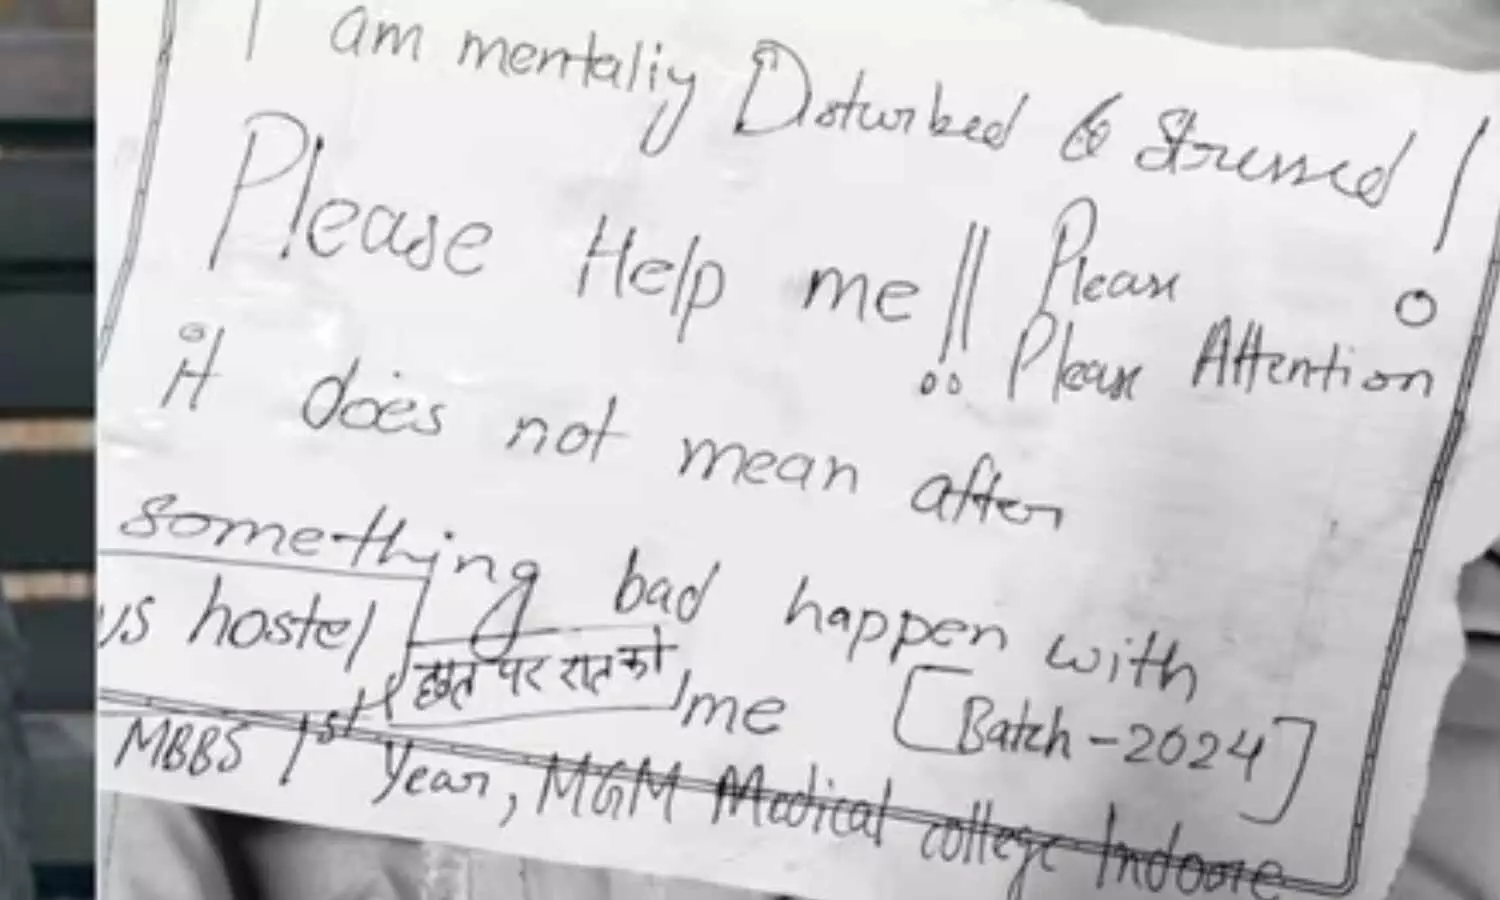 I am mentally Disturbed & Stressed !
Please Help me !! Please
Please Attention
it does not mean after
something bad happen with
us hostel
छत पर रात को
me [Batch-2024]
MBBS 1st Year, MGM Medical college Indore